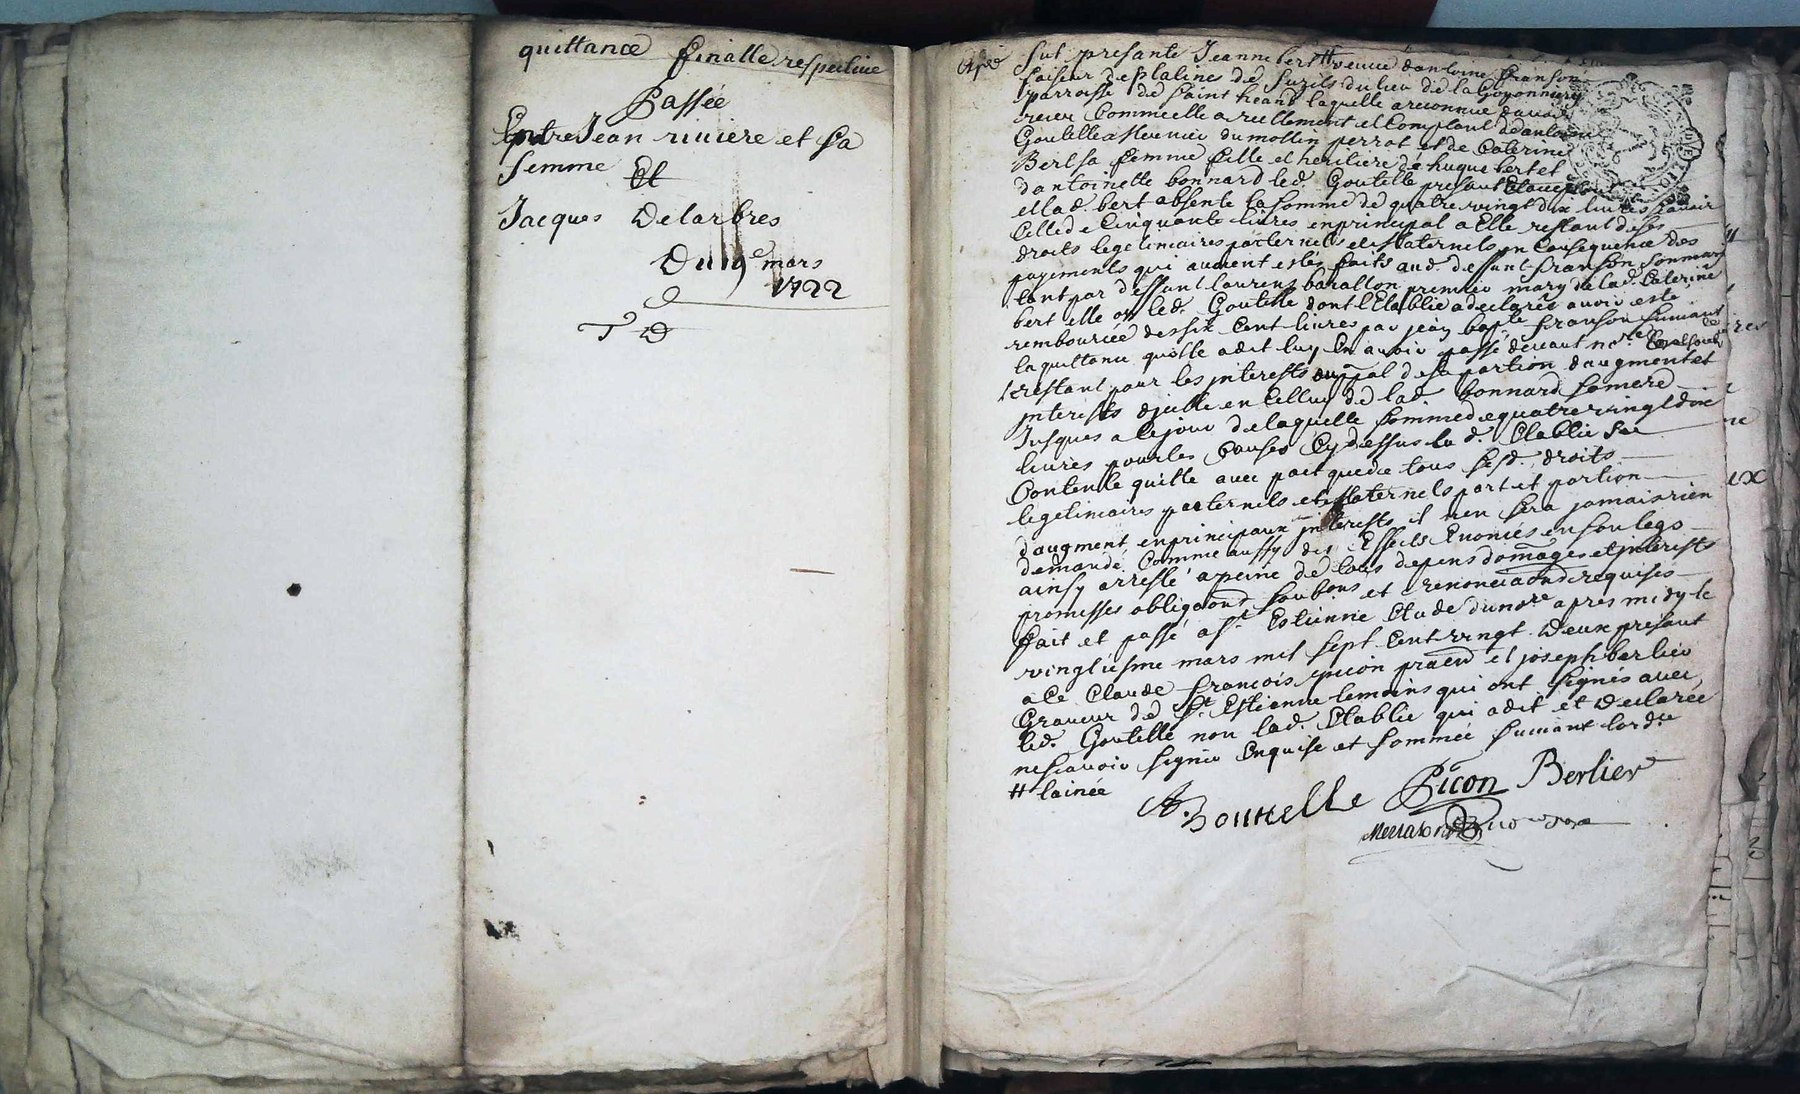 quittance finalle respective
Passée
Entre Jean riviere et sa
femme Et
Jacques Delarbres
Du 19e mars
1722
T D
fut presante Jeanne bert # veuve dantoine franson
faiseur de platines de fuzils du lieu de la Goyonniery
parroisse de saint heand laquelle a reconnue davoir
receu Comme elle a reellement et Comptant dantoine
Goutelle Meunier du mollin perrot et de Caterine
Bert sa femme fille et heritiere de hugue bert et
dantoinette bonnard led. Goutelle presant et acceptant
et lad. bert absente la somme de quatre vingt dix livres savoir
Celle de Cinquante livres en principal a Elle restant de ses
droits legetimaires paternels et Maternels en Consequence des
payements qui avoient estés faits aud. deffunt franson son mary
tant par deffunt laurens barallon premier mary de lad. Caterine
bert elle ou led. Goutelle dont l'Etablie a declarée avoir esté
remboursée des six Cent livres par jean bapte franson suivant
la quittance qu'elle a dit luy En avoir passé devant nore
restant pour les jnterests du ppal de sa portion daugment et
jnterests djcelle en Celluy de lad. bonnard sa mere
Jusques a Ce jour de laquelle somme de quatre vingt dix
livres pour les Causes Cy dessus la d. Etablie se
Contente quitte avec pact que de tous sesd. droits
legetimaires paternels et Maternels part et portion
daugment en principaux jnterests il n'en sera jamais rien
demandé Comme aussy des Effects Enoncés en son legs
ainsy arresté a peine de tous depens domages et jnterests
promesses obligaons soubons et renonciaons requises
fait et passé a St Estienne Etude du nore apres midy le
vingtiesme mars mil sept Cent vingt Deux presant
a Ce Claude francois picon praen et joseph berlier
Graveur de St Estienne temoins qui ont signés avec
led. Goutelle non lad. Etablie qui a dit et Declarée
ne scavoir signer Enquise et sommée suivant lord.ce
# lainée
A. Goutelle Picon Berlier